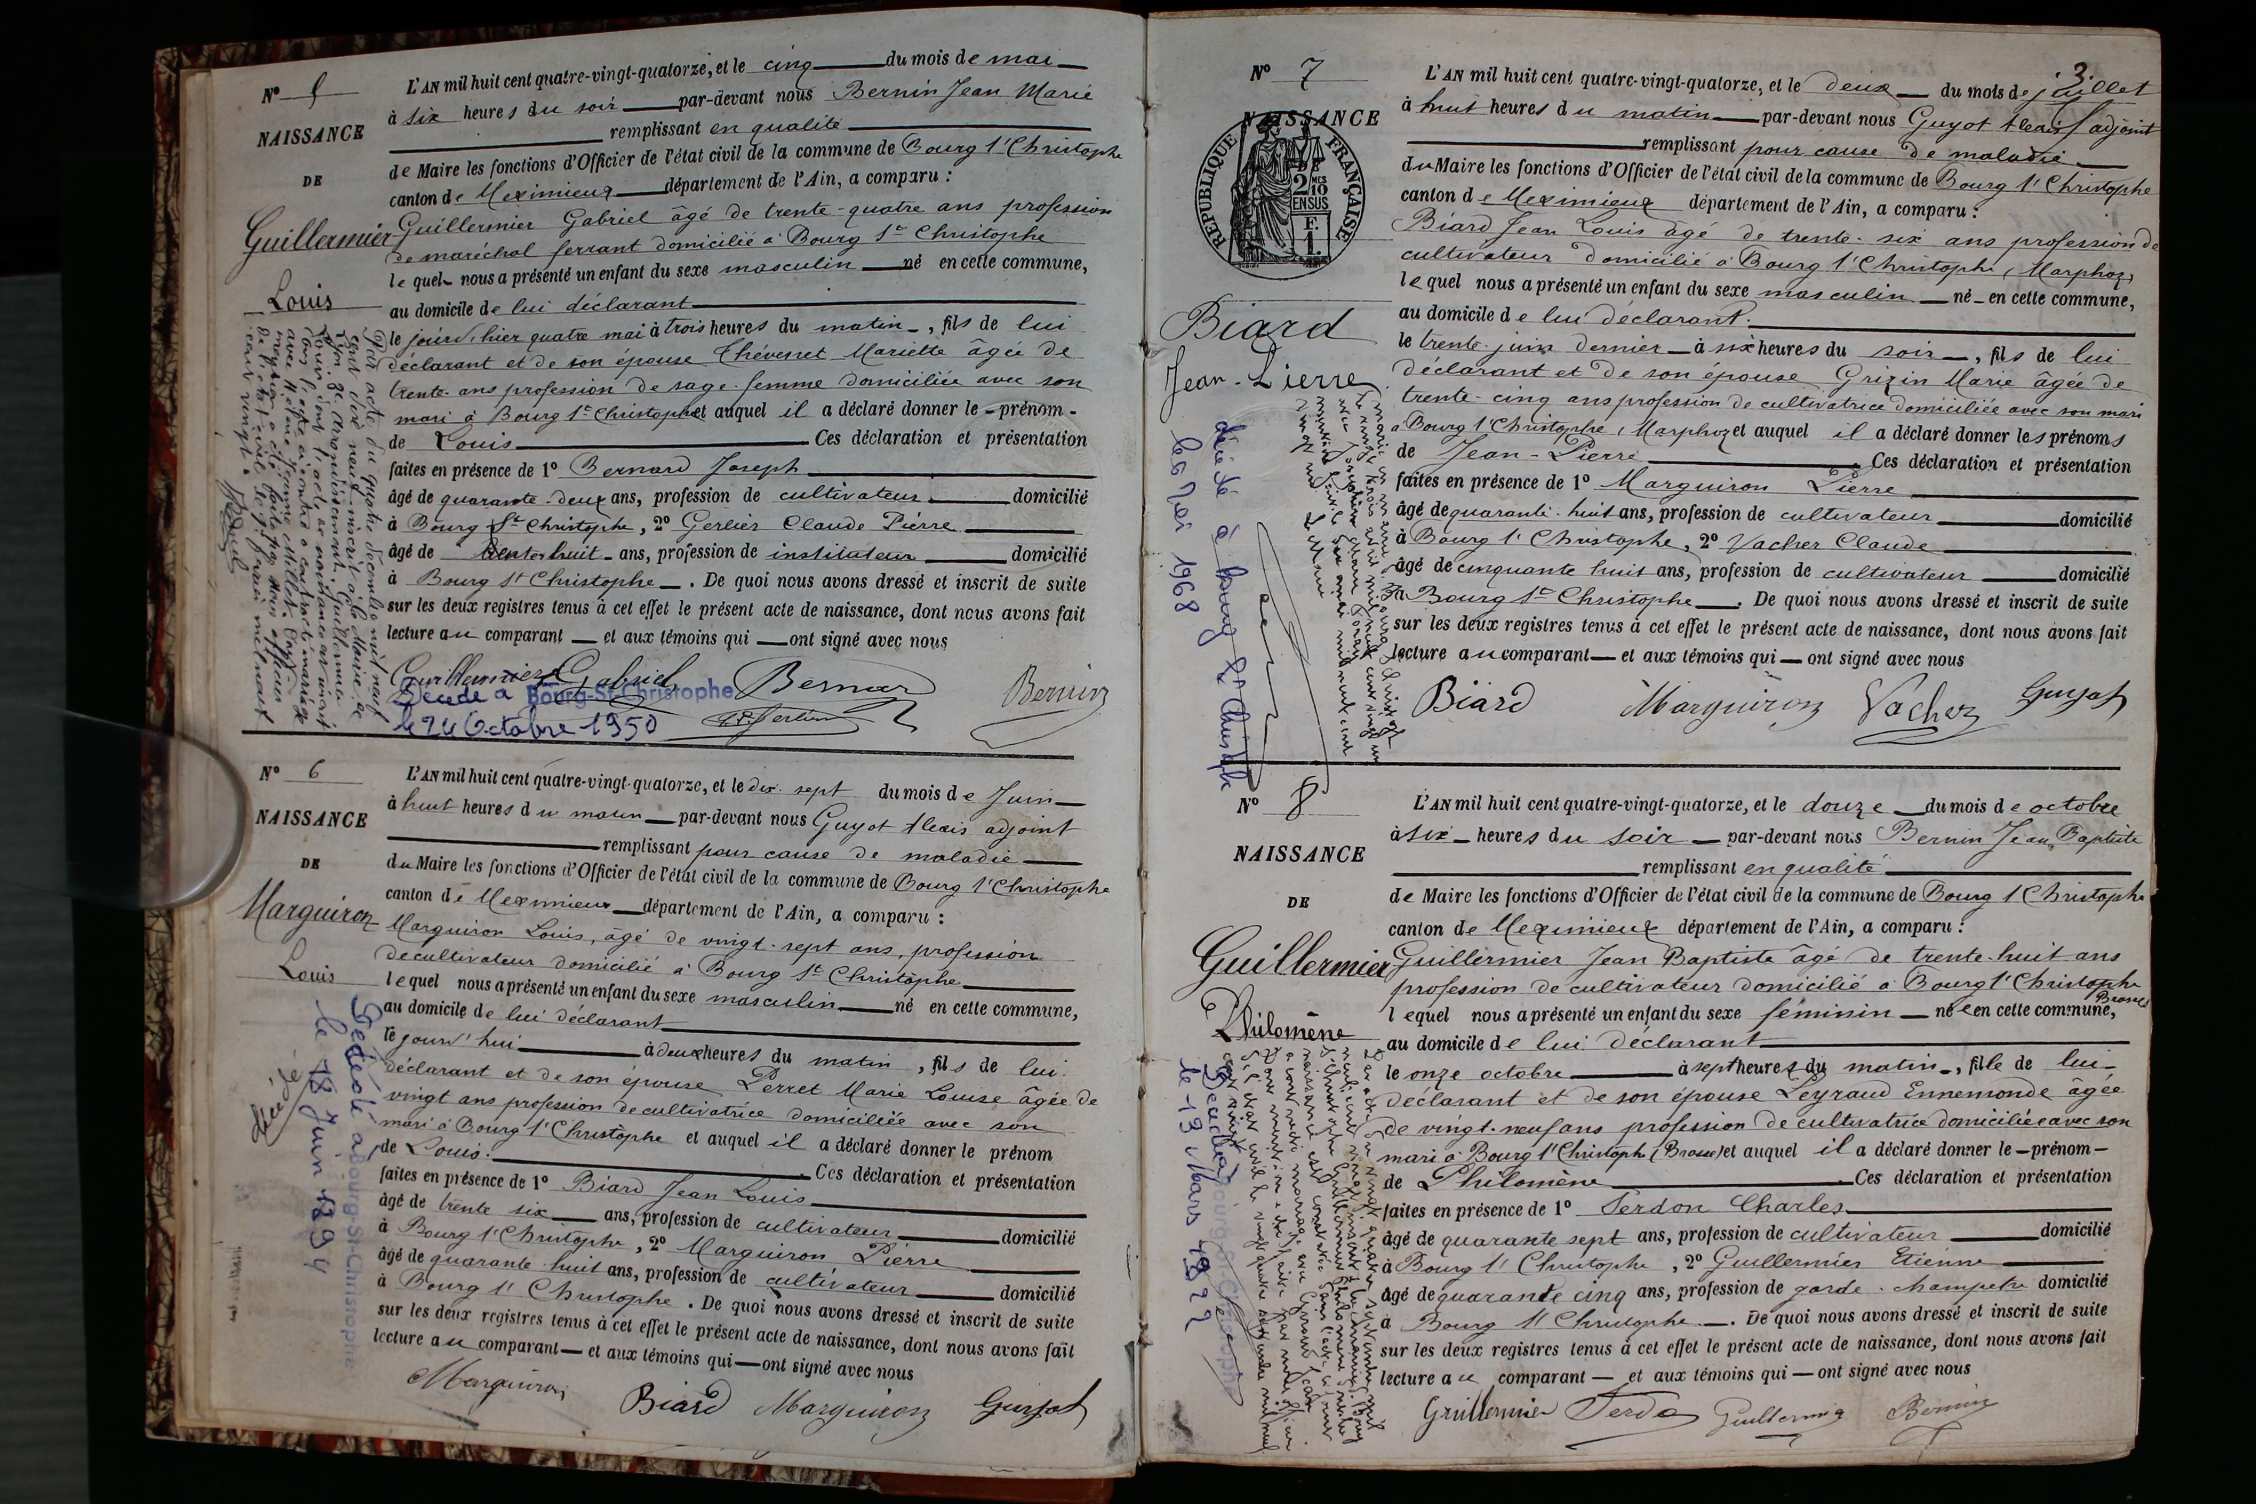 N° 5
NAISSANCE
DE
Guillermier
Louis
L'AN mil huit cent quatre-vingt-quatorze, et le cinq du mois de mai
à six heures du soir par-devant nous Bernin Jean Marie
remplissant en qualité
de Maire les fonctions d'Officier de l'état civil de la commune de Bourg St Christophe
canton de Meximieux département de l'Ain, a comparu :
Guillermier Gabriel âgé de trente-quatre ans profession
de maréchal ferrant domicilié à Bourg St Christophe
lequel nous a présenté un enfant du sexe masculin né en cette commune,
au domicile de lui déclarant
le jourd'hier quatre mai à trois heures du matin, fils de lui
déclarant et de son épouse Thévenet Mariette âgée de
trente ans profession de sage-femme domiciliée avec son
mari à Bourg St Christophe et auquel il a déclaré donner le prénom
de Louis Ces déclaration et présentation
faites en présence de 1° Bernard Joseph
âgé de quarante-deux ans, profession de cultivateur domicilié
à Bourg St Christophe, 2° Gerlier Claude Pierre
âgé de trente huit ans, profession de instituteur domicilié
à Bourg St Christophe. De quoi nous avons dressé et inscrit de suite
sur les deux registres tenus à cet effet le présent acte de naissance, dont nous avons fait
lecture au comparant et aux témoins qui ont signé avec nous
Guillermier Gabriel Bernard Bernin
Gerlier
Décédé à Bourg-St-Christophe
le 24 Octobre 1950
Par acte du quatre décembre mil neuf
cent dix neuf inscrit à la Mairie de
Lyon 3e arrondissement, Guillermier
Louis dont l'acte de naissance est inscrit
dans l'acte ci-contre a contracté mariage
avec
N° 6
NAISSANCE
DE
Marguiron
Louis
L'AN mil huit cent quatre-vingt-quatorze, et le dix-sept du mois de Juin
à huit heures du matin par-devant nous Guyot Alexis adjoint
remplissant pour cause de maladie
du Maire les fonctions d'Officier de l'état civil de la commune de Bourg St Christophe
canton de Meximieux département de l'Ain, a comparu :
Marguiron Louis, âgé de vingt-sept ans, profession
de cultivateur domicilié à Bourg St Christophe
lequel nous a présenté un enfant du sexe masculin né en cette commune,
au domicile de lui déclarant
le jourd'hui à deux heures du matin, fils de lui
déclarant et de son épouse Perret Marie Louise âgée de
vingt ans profession de cultivatrice domiciliée avec son
mari à Bourg St Christophe et auquel il a déclaré donner le prénom
de Louis. Ces déclaration et présentation
faites en présence de 1° Biard Jean Louis
âgé de trente six ans, profession de cultivateur domicilié
à Bourg St Christophe, 2° Marguiron Pierre
âgé de quarante-huit ans, profession de cultivateur domicilié
à Bourg St Christophe. De quoi nous avons dressé et inscrit de suite
sur les deux registres tenus à cet effet le présent acte de naissance, dont nous avons fait
lecture au comparant et aux témoins qui ont signé avec nous
Marguiron Biard Marguiron Guyot
Décédé à Bourg-St-Christophe
le 18 Juin 1894
3
N° 7
NAISSANCE
RÉPUBLIQUE FRANÇAISE
2 MES 10
EN SUS
F. 1.
Biard
Jean-Pierre
L'AN mil huit cent quatre-vingt-quatorze, et le deux du mois de juillet
à huit heures du matin par-devant nous Guyot Alexis adjoint
remplissant pour cause de maladie
du Maire les fonctions d'Officier de l'état civil de la commune de Bourg St Christophe
canton de Meximieux département de l'Ain, a comparu :
Biard Jean Louis âgé de trente-six ans profession de
cultivateur domicilié à Bourg St Christophe (Marphoz)
lequel nous a présenté un enfant du sexe masculin né en cette commune,
au domicile de lui déclarant.
le trente juin dernier à six heures du soir, fils de lui
déclarant et de son épouse Grizin Marie âgée de
trente-cinq ans profession de cultivatrice domiciliée avec son mari
à Bourg St Christophe (Marphoz) et auquel il a déclaré donner les prénoms
de Jean-Pierre Ces déclaration et présentation
faites en présence de 1° Marguiron Pierre
âgé de quarante-huit ans, profession de cultivateur domicilié
à Bourg St Christophe, 2° Vacher Claude
âgé de cinquante huit ans, profession de cultivateur domicilié
à Bourg St Christophe. De quoi nous avons dressé et inscrit de suite
sur les deux registres tenus à cet effet le présent acte de naissance, dont nous avons fait
lecture au comparant et aux témoins qui ont signé avec nous
Biard Marguiron Vacher Guyot
décédé à Bourg St Christophe
1968
N° 8
NAISSANCE
DE
Guillermier
Philomène
L'AN mil huit cent quatre-vingt-quatorze, et le douze du mois de octobre
à six heures du soir par-devant nous Bernin Jean Baptiste
remplissant en qualité
de Maire les fonctions d'Officier de l'état civil de la commune de Bourg St Christophe
canton de Meximieux département de l'Ain, a comparu :
Guillermier Jean Baptiste âgé de trente-huit ans
profession de cultivateur domicilié à Bourg St Christophe
lequel nous a présenté un enfant du sexe féminin née en cette commune,
au domicile de lui déclarant
le onze octobre à sept heures du matin, fille de lui
déclarant et de son épouse Peyraud Ennemonde âgée
de vingt-neuf ans profession de cultivatrice domiciliée avec son
mari à Bourg St Christophe (Brosse) et auquel il a déclaré donner le prénom
de Philomène Ces déclaration et présentation
faites en présence de 1° Ferdon Charles
âgé de quarante sept ans, profession de cultivateur domicilié
à Bourg St Christophe, 2° Guillermier Etienne
âgé de quarante cinq ans, profession de garde-champetre domicilié
à Bourg St Christophe. De quoi nous avons dressé et inscrit de suite
sur les deux registres tenus à cet effet le présent acte de naissance, dont nous avons fait
lecture au comparant et aux témoins qui ont signé avec nous
Guillermier Ferdon Guillermier Bernin
Décédée à Bourg-St-Christophe
le 13 Mars